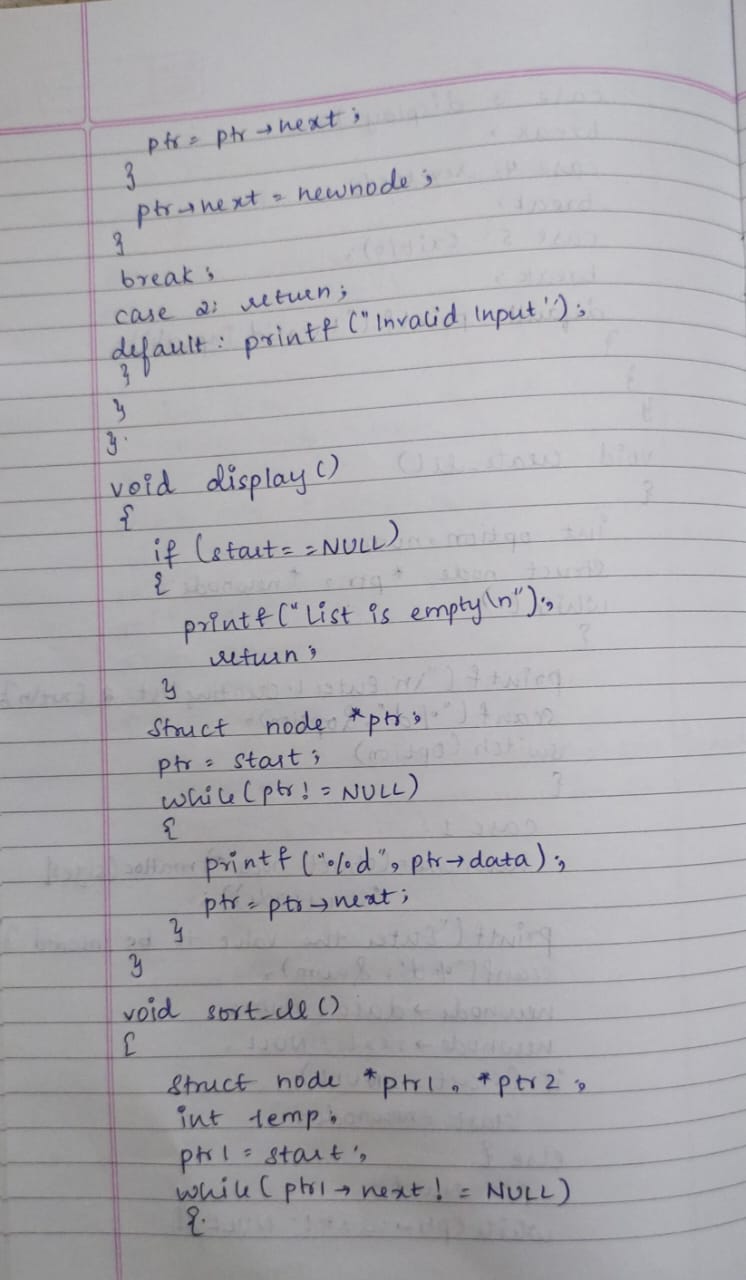 ptr = ptr → next;
}
ptr → next = newnode;
}
break;
case 2: return;
default: printf ("Invalid Input");
}
}
}
void display()
{
if (start == NULL)
{
printf("List is empty\n");
return;
}
struct node *ptr;
ptr = start;
while(ptr != NULL)
{
printf("%d", ptr→data);
ptr = ptr→next;
}
}
void sort_ll()
{
struct node *ptr1, *ptr2;
int temp;
ptr1 = start;
while(ptr1→next != NULL)
{